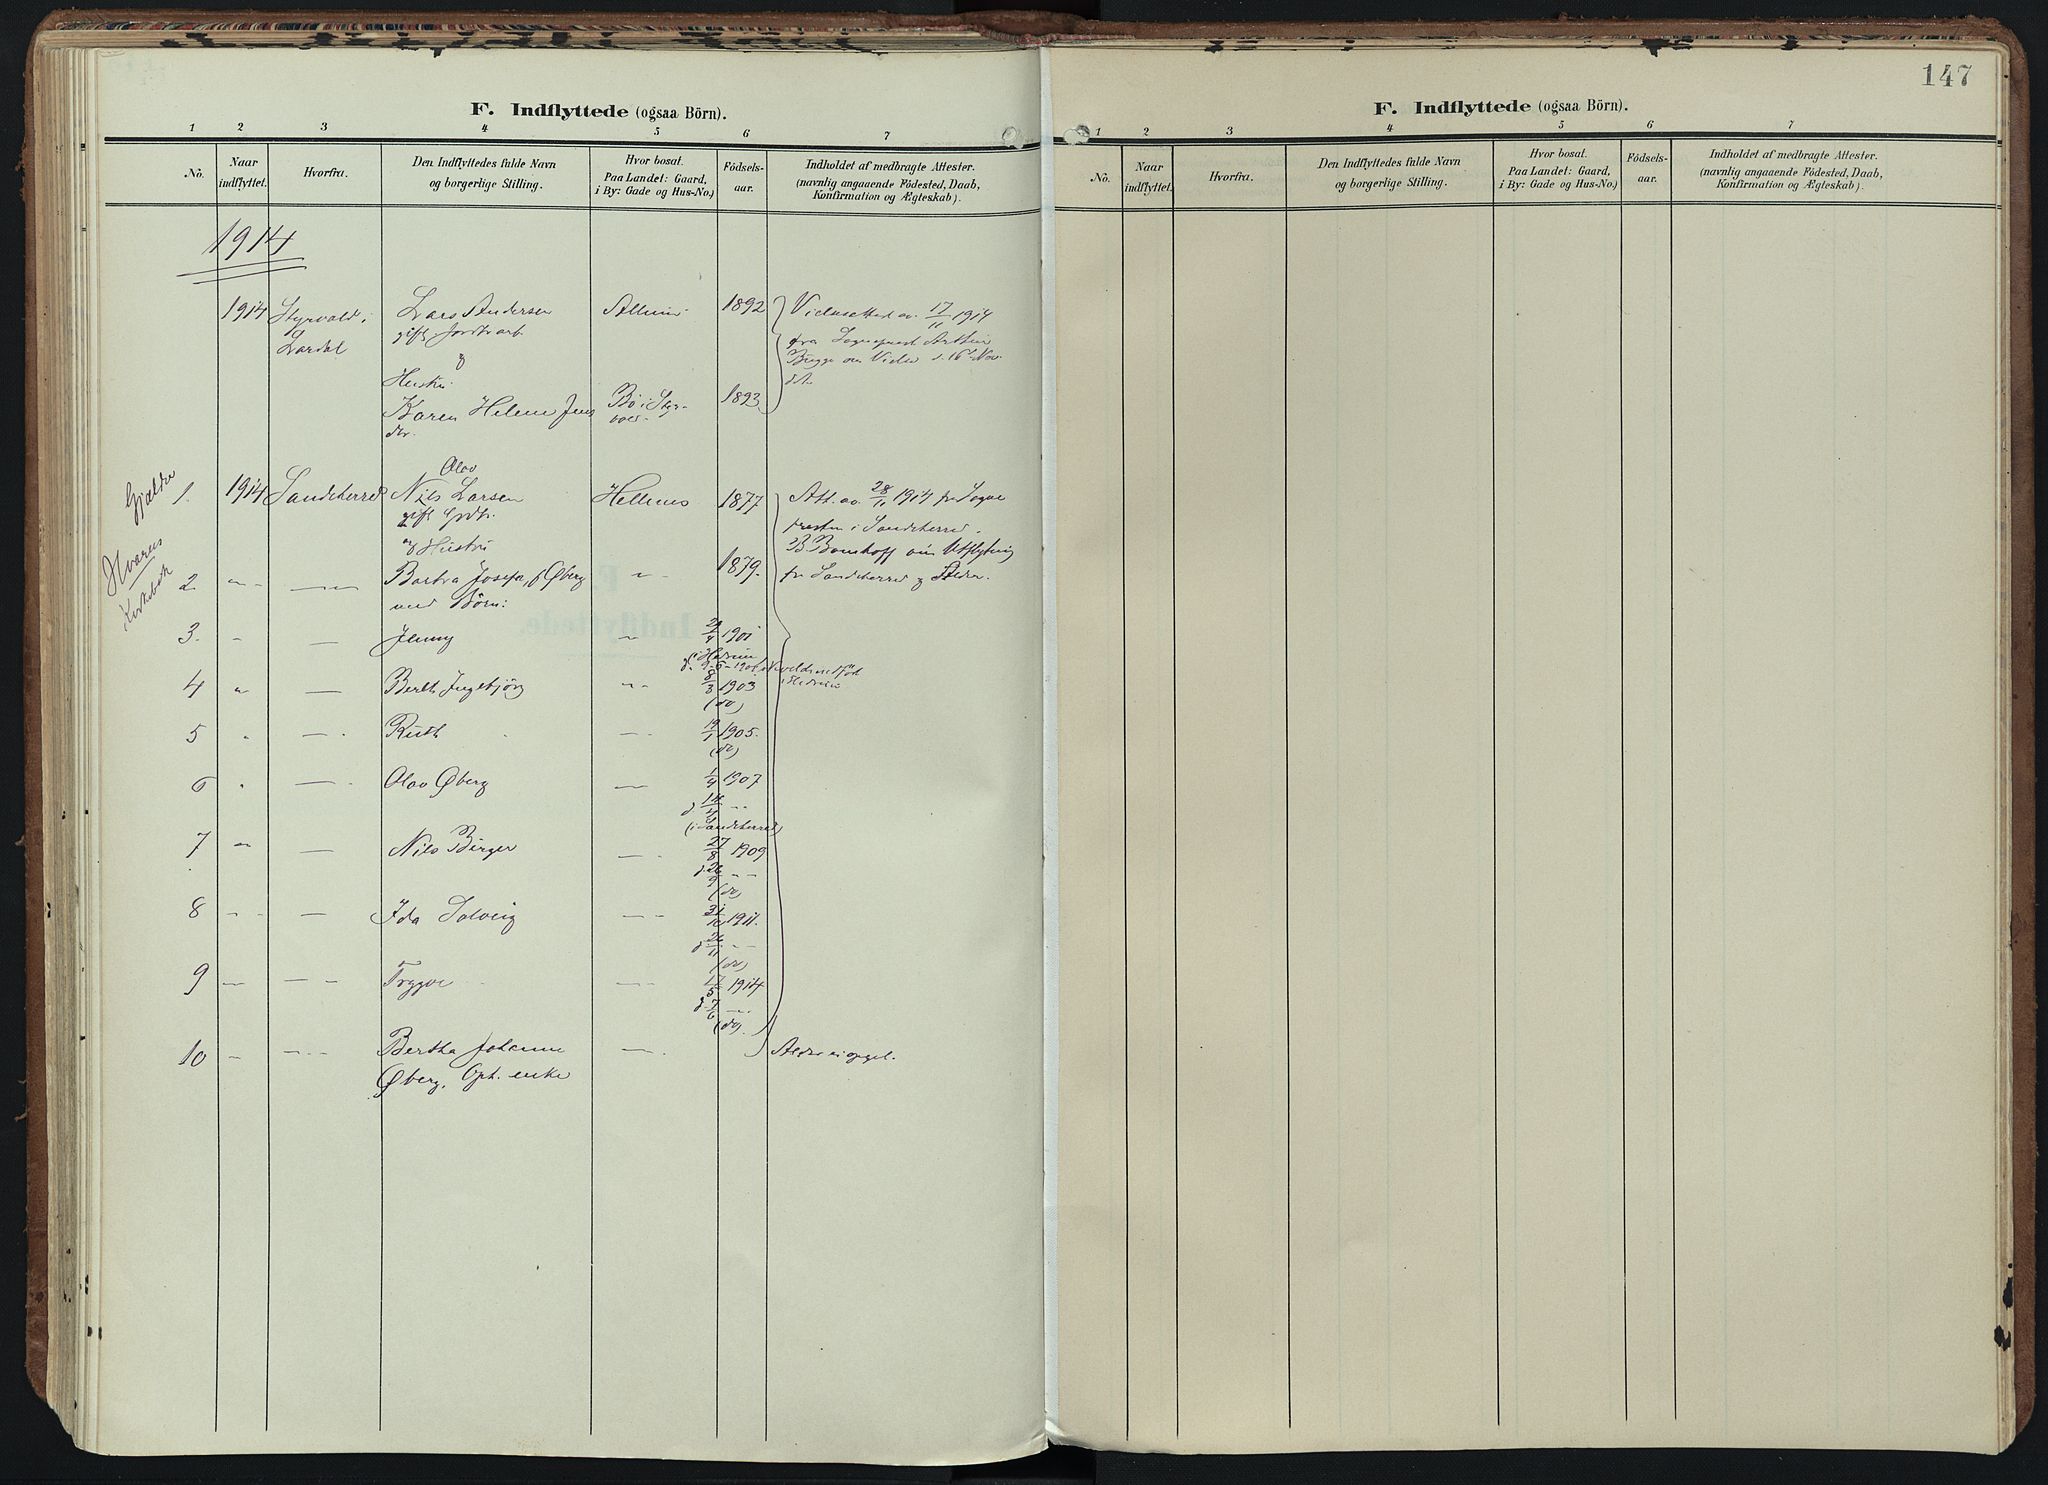 147
F. Indflyttede (ogsaa Börn).
1 2 3 4 5 6 7
No. Naar indflyttet. Hvorfra. Den Indflyttedes fulde Navn og borgerlige Stilling. Hvor bosat. Paa Landet: Gaard, i By: Gade og Hus-No.) Födsels-aar. Indholdet af medbragte Attester. (navnlig angaaende Födested, Daab, Konfirmation og Ægteskab).
1914
1914 Styrvold i Lars Andersen 1892 Vielsesattest av 17/11 1914
Lardal gift fra Sogneprest Arthur
& Bugge om Vielse d. 16 Nov.
Hustru d.A.
Karen Helene Jens Bö i Styr- 1893
dtr. vold
Olav
1. 1914 Sandeherred Nils Larsen Hellenes 1877 Att. av 28/11 1914 fr Sogne
gift presten i Sandeherred
og Hustru B Bomhoff om Utflytning
2 - - Barbra Josefa, f Øberg - 1879. fra Sandeherred og Alder.
med Börn:
Hvarnes
Kirkebok
3. - - Jenny - 1901
4 - - Berth Ingebjörg - 8/3 1903
(do)
5 - - Ruth - 19/1 1905.
(do)
6 - - Olav Øberg - 1/4 1907
(i Sandeherred)
7 - - Nils Birger - 27/8 1909
(do)
8 - - Ida Solveig - 31/10 1911.
(do)
9 - - Trygve - 17/5 1914
d. 7/6 -
(do).
10 - - Bertha Johanne - Alder ei opgit.
Øberg, enke
F. Indflyttede (ogsaa Börn).
1 2 3 4 5 6 7
No. Naar indflyttet. Hvorfra. Den Indflyttedes fulde Navn og borgerlige Stilling. Hvor bosat. Paa Landet: Gaard, i By: Gade og Hus-No.) Födsels-aar. Indholdet af medbragte Attester. (navnlig angaaende Födested, Daab, Konfirmation og Ægteskab).